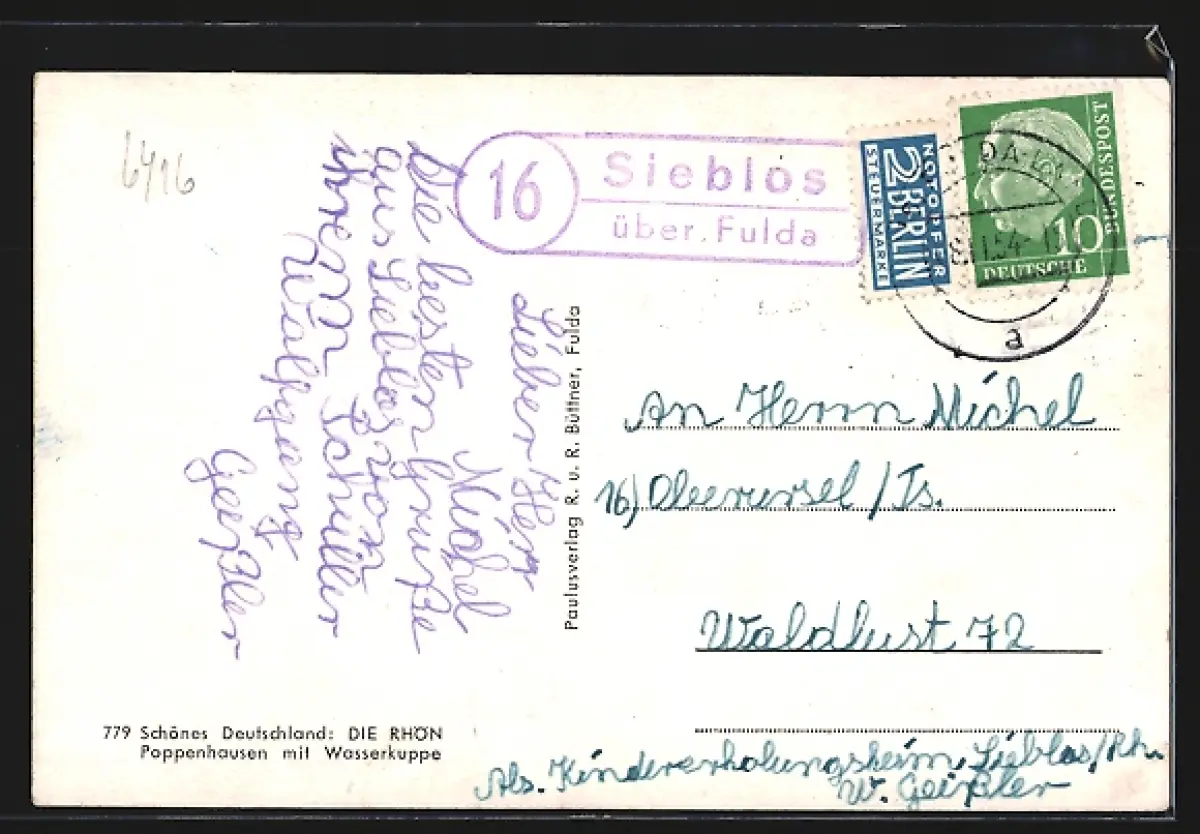 6416
16
Sieblos
über Fulda
NOTOPFER
2 BERLIN
STEUERMARKE
DEUTSCHE
BUNDESPOST
10
54
a
Lieber Herr
Michel
Die besten Grüße
aus Sieblos von
ihrem Schüller
Wolfgang
Geißler
Paulusverlag R. u. R. Büttner, Fulda
An Herrn Michel
16) Oberursel / Ts.
Waldlust 72
779 Schönes Deutschland: DIE RHÖN
Poppenhausen mit Wasserkuppe
Abs. Kindererholungsheim Sieblos/Rh.
W. Geißler